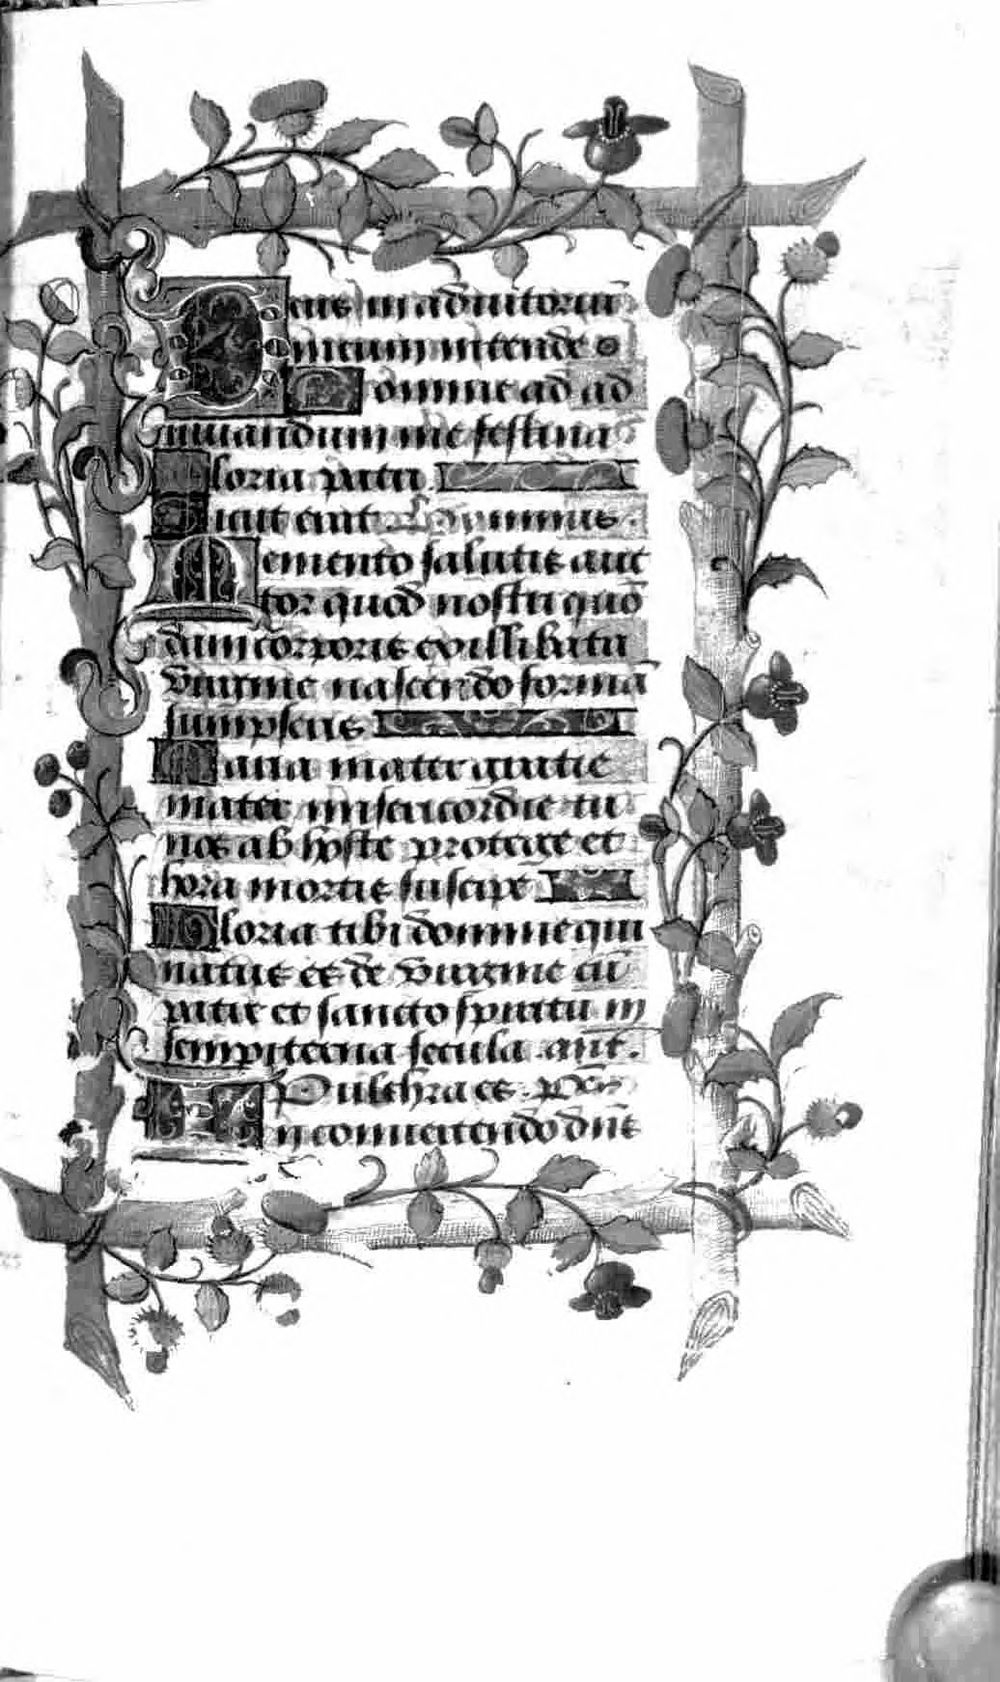 Deus in adiutoriū
meum intende
Domine ad ad
iuuandum me festina
Gloria patri
Sicut erat
Memento salutis auc
tor quod nostri quō
dam corporis ex illibata
virgine nascendo formā
sumpseris
Maria mater gratie
mater misericordie tu
nos ab hoste protege et
hora mortis suscipe
Gloria tibi domine qui
natus es de virgine cū
patre et sancto spiritu in
sempiterna secula. ant.
Pulchra es. ps̄
In conuertendo dn̄s